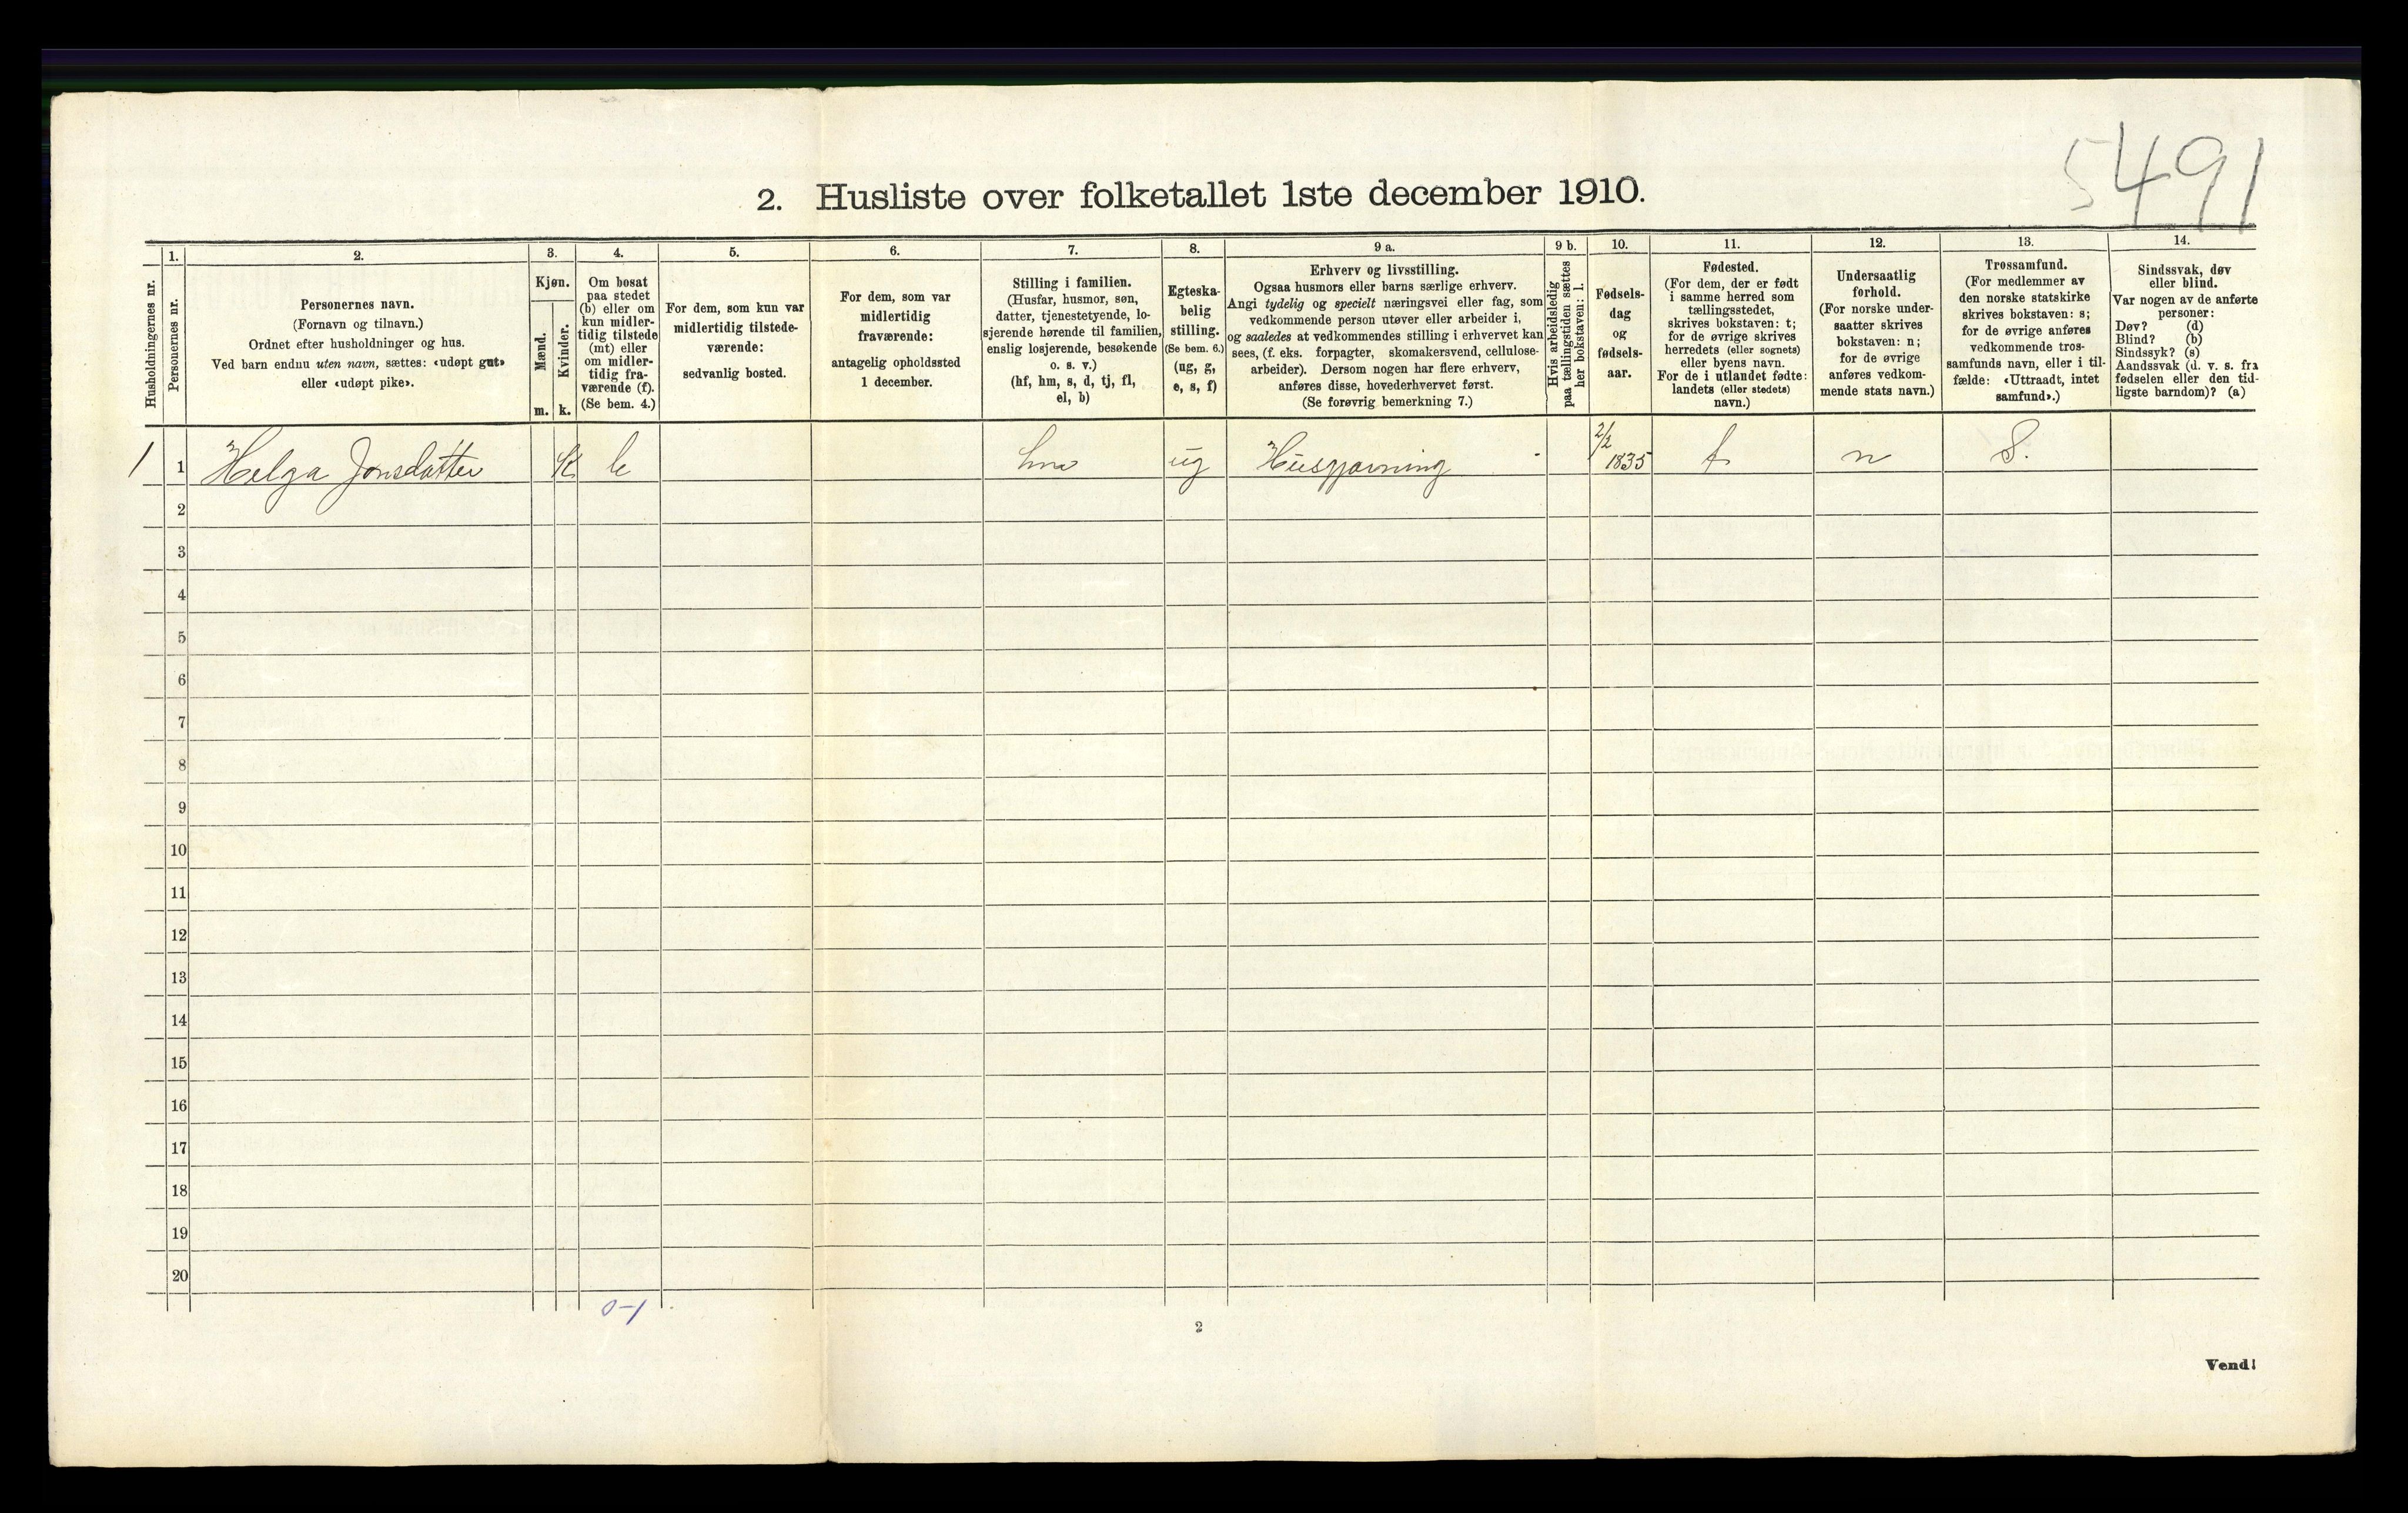 5491
2. Husliste over folketallet 1ste december 1910.
Husholdningernes nr.
1.
Personernes nr.
2.
Personernes navn.
(Fornavn og tilnavn.)
Ordnet efter husholdninger og hus.
Ved barn endnu uten navn, sættes: «udøpt gut»
eller «udøpt pike».
3.
Kjøn.
Mænd.
m.
Kvinder.
k.
4.
Om bosat
paa stedet
(b) eller om
kun midler-
tidig tilstede
(mt) eller
om midler-
tidig fra-
værende (f).
(Se bem. 4.)
5.
For dem, som kun var
midlertidig tilstede-
værende:
sedvanlig bosted.
6.
For dem, som var
midlertidig
fraværende:
antagelig opholdssted
1 december.
7.
Stilling i familien.
(Husfar, husmor, søn,
datter, tjenestetyende, lo-
sjerende hørende til familien,
enslig losjerende, besøkende
o. s. v.)
(hf, hm, s, d, tj, fl,
el, b)
8.
Egteska-
belig
stilling.
(Se bem. 6.)
(ug, g,
e, s, f)
9 a.
Erhverv og livsstilling.
Ogsaa husmors eller barns særlige erhverv.
Angi tydelig og specielt næringsvei eller fag, som
vedkommende person utøver eller arbeider i,
og saaledes at vedkommendes stilling i erhvervet kan
sees, (f. eks. forpagter, skomakersvend, cellulose-
arbeider). Dersom nogen har flere erhverv,
anføres disse, hovederhvervet først.
(Se forøvrig bemerkning 7.)
9 b.
Hvis arbeidsledig
paa tællingstiden sættes
her bokstaven: l.
10.
Fødsels-
dag
og
fødsels-
aar.
11.
Fødested.
(For dem, der er født
i samme herred som
tællingsstedet,
skrives bokstaven: t;
for de øvrige skrives
herredets (eller sognets)
eller byens navn.
For de i utlandet fødte:
landets (eller stedets)
navn.)
12.
Undersaatlig
forhold.
(For norske under-
saatter skrives
bokstaven: n;
for de øvrige
anføres vedkom-
mende stats navn.)
13.
Trossamfund.
(For medlemmer av
den norske statskirke
skrives bokstaven: s;
for de øvrige anføres
vedkommende tros-
samfunds navn, eller i til-
fælde: «Uttraadt, intet
samfund».)
14.
Sindssvak, døv
eller blind.
Var nogen av de anførte
personer:
Døv? (d)
Blind? (b)
Sindssyk? (s)
Aandssvak (d. v. s. fra
fødselen eller den tid-
ligste barndom)? (a)
1 1 Helga Jonsdatter K b hm ug Husgjærning - 2/2 1835 t n S.
2
3
4
5
6
7
8
9
10
11
12
13
14
15
16
17
18
19
20
0-1
2
Vend!